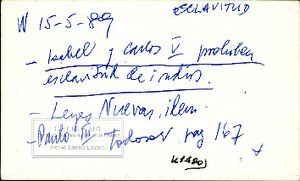 ESCLAVITUD
W 15-5-89
- Isabel y Carlos V prohiben
esclavitud de indios.
- Leyes Nuevas, idem
- Paulo III Todorov pag 167